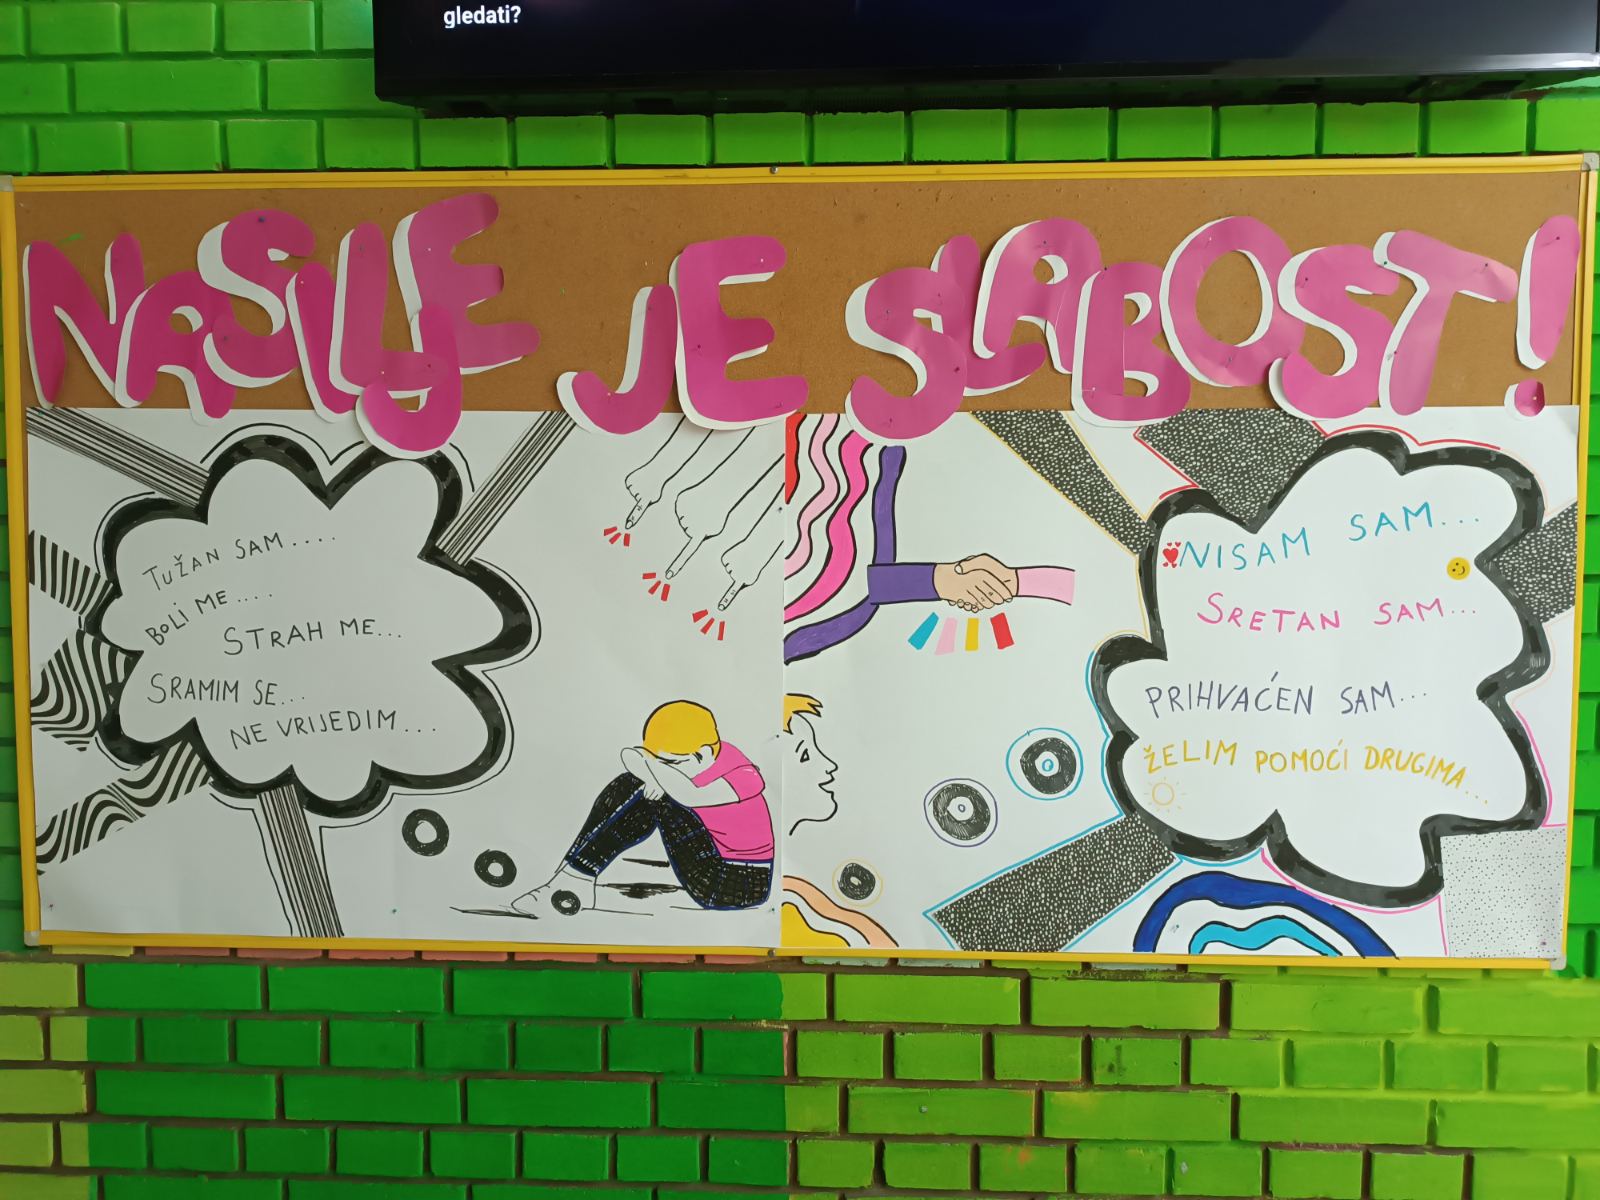 gledati?
NASILJE JE SLABOST!
TUŽAN SAM....
BOLI ME....
STRAH ME...
SRAMIM SE...
NE VRIJEDIM...
NISAM SAM...
SRETAN SAM...
PRIHVAĆEN SAM...
ŽELIM POMOĆI DRUGIMA...